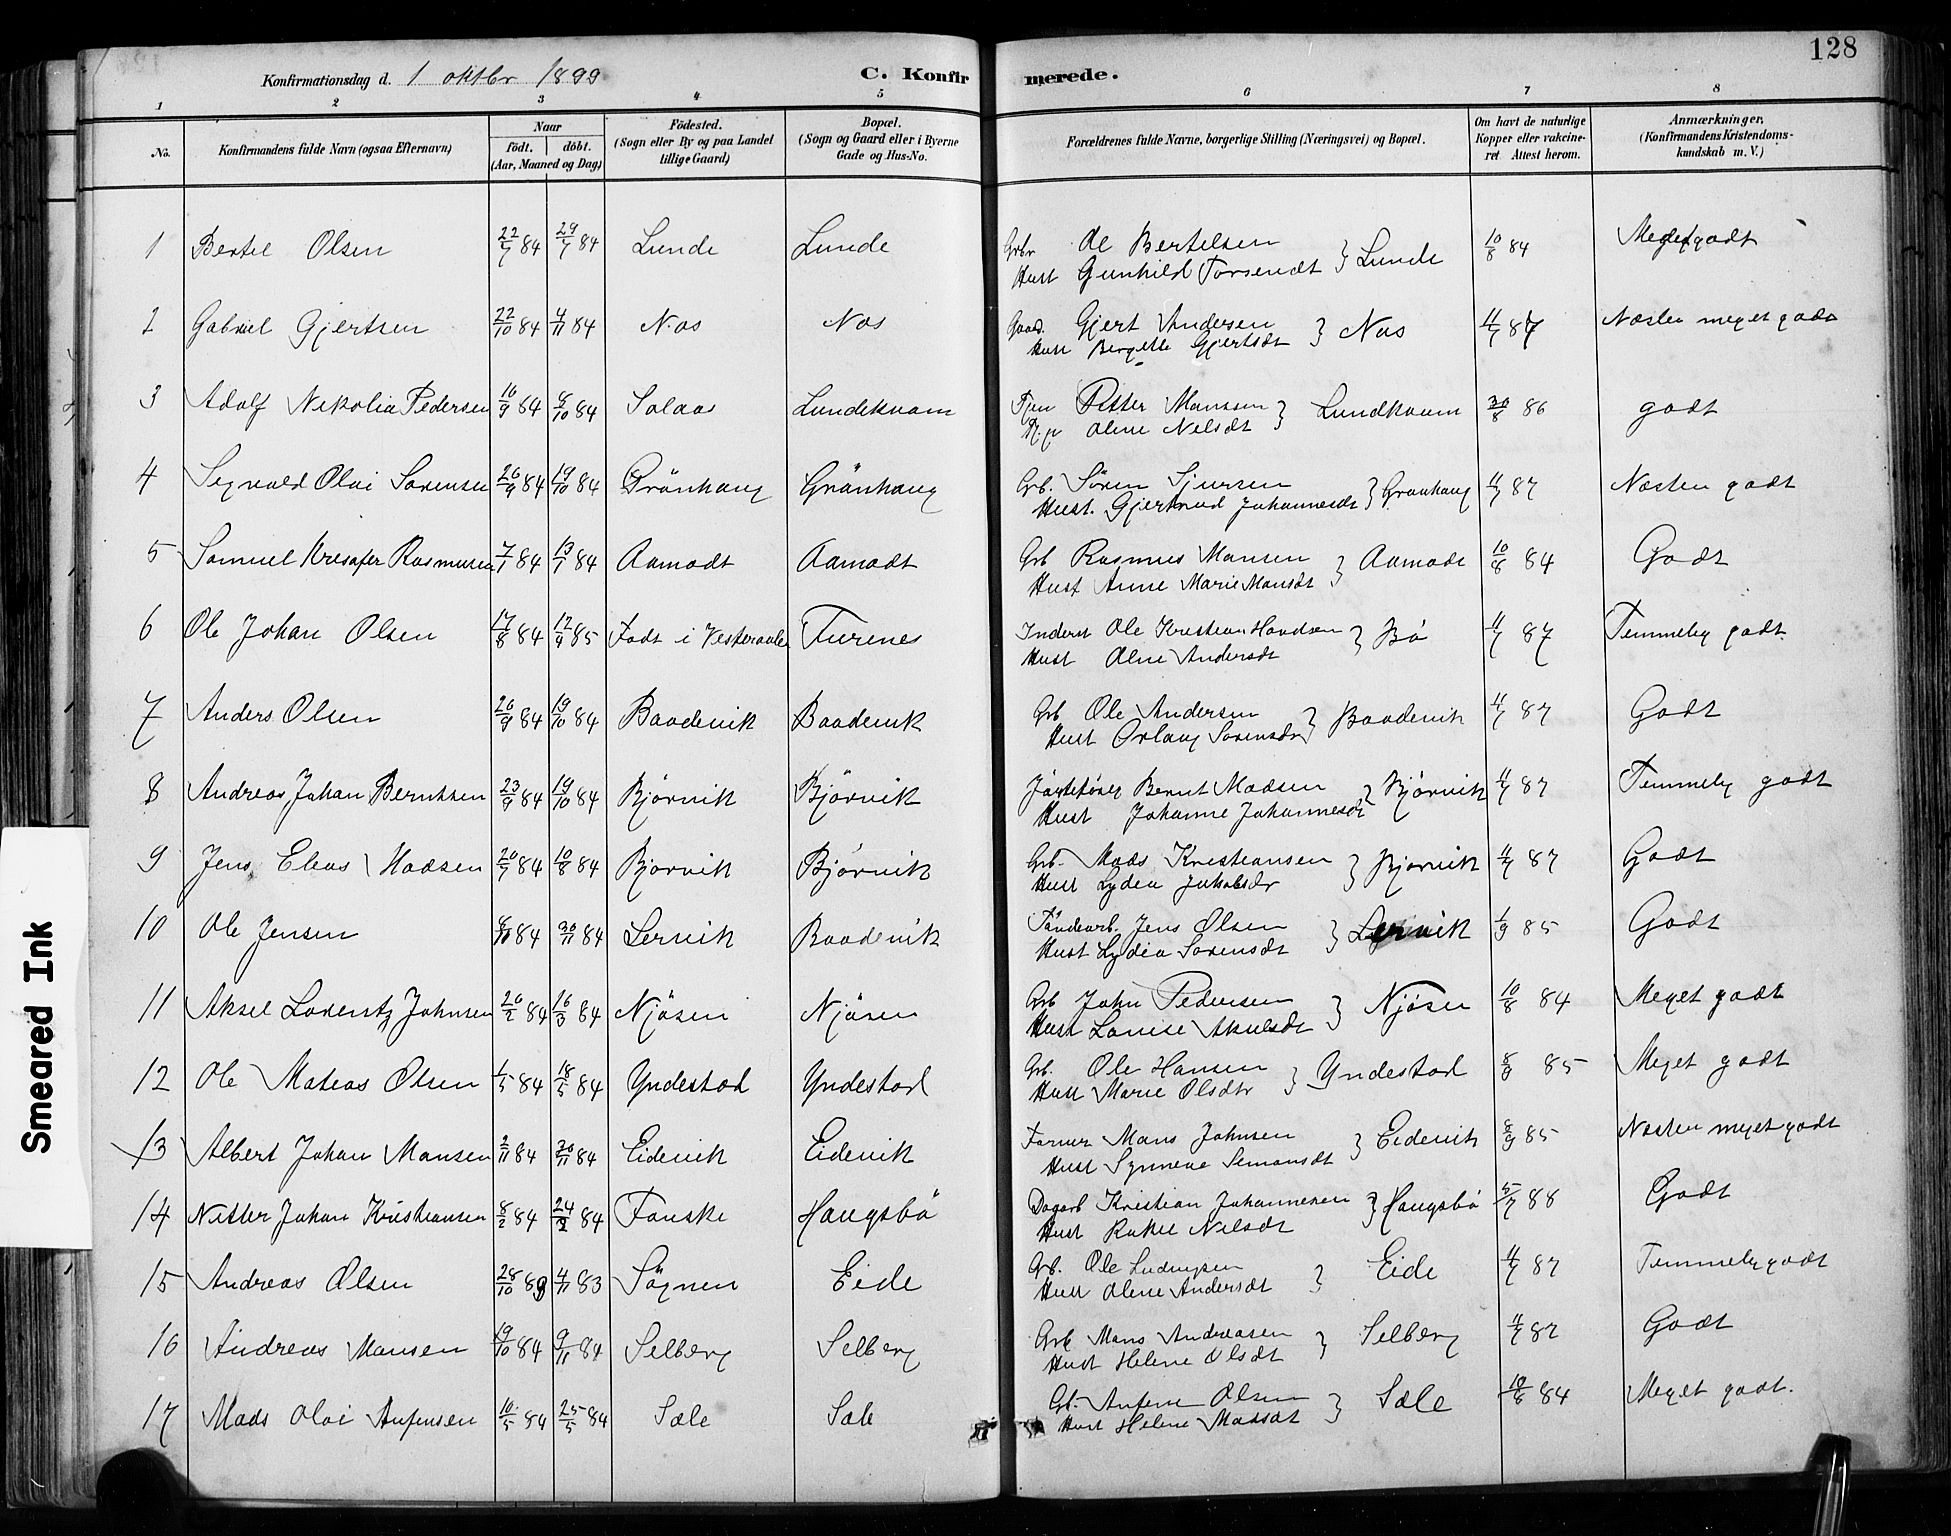 128
Konfirmationsdag d. 1 oktbr 1899 C. Konfirmerede.
1 2 3 4 5 6 7 8
No. Konfirmandens fulde Navn (ogsaa Efternavn) Naar født. døbt. (Aar, Maaned og Dag) Fødested. (Sogn eller By og paa Landet tillige Gaard) Bopæl. (Sogn og Gaard eller i Byerne Gade og Hus-No. Forældrenes fulde Navne, borgerlige Stilling (Næringsvei) og Bopæl. Om havt de naturlige Kopper eller vakcineret Attest herom. Anmærkninger. (Konfirmandens Kristendomskundskab m. V.)
1 Bertel Olsen 22/7 84 29/7 84 Lunde Lunde Grbr Ol Bertelsen } Lunde 10/8 84 Meget godt
Hust Gunhild Torsendt
2 Gabriel Gjertsen 22/10 84 4/11 84 Nos Nos Gjert Andersen } Nos 11/7 87 Næsten meget godt
Hust Bergitte Gjertsdt
3 Adolf Nikolia Pedersen 16/9 84 8/10 84 Solaas Lundekvam Tjen Petter Monssen } Lundkvam 30/8 86 godt
Olene Nelsdt
4 Sigvald Olai Sørensen 26/9 84 19/10 84 Grönhaug Grönhaug Grb. Sören Sjursen } Grønhaug 11/7 87 Næsten godt
Hust. Gjertrud Johannesdt
5 Samuel Kresofer Rasmusen 7/1 84 13/1 84 Aamodt Aamodt Grb Rasmus Mansen } Aamodt 10/8 84 Godt
Hust Anne Marie Monsdt
6 Ole Johan Olsen 17/8 84 12/9 85 Født i Vesteraalen Furenes Inderst Ole Kristian } Bø 11/7 87 Temmelig godt
Hust Olne Andersdt
7 Anders Olsen 26/9 84 19/10 84 Baadevik Baadevik Grb Ole Andersen } Baadevik 11/7 87 Godt
Hust Orlaug Sørensdr
8 Andreas Johan Berntsen 23/9 84 19/10 84 Bjørvik Bjørvik Jægtefører Bernt Madsen } Bjørvik 11/7 87 Temmelig godt
Hust Johanne Johannesdt
9 Jens Elias Madsen 20/7 84 10/8 84 Bjørvik Bjørvik Grb. Mads Kristiansen } Bjørvik 11/7 87 Godt
Hust Lydea Jakobsdr
10 Ole Jensen 8/10 84 30/11 84 Lervik Baadevik Tøndearb. Jens Olsen } Lervik 1/9 85 Godt
Hust Lydia Sørensdt
11 Aksel Lorentz Johnsen 20/2 84 16/3 84 Njösen Njösen Grb John Pedersen } Njøsen 10/8 84 Meget godt
Hust Lovise Akselsdt
12 Ole Mateas Olsen 1/5 84 18/5 84 Yndestad Yndestad Grb. Ole Hansen } Yndestad 8/9 85 Meget godt
Hust Marie Olsdtr
13 Albert Johan Mansen 2/11 84 30/11 84 Eidevik Eidevik Mans Johnsen } Eidevik 8/9 85 Næsten meget godt
Hust Synneve Simonsdt
14 Netter Johan Kristiansen 8/2 84 24/2 84 Fanske Haugsbø Dagarb Kristian Johannesen } Haugsbø 5/7 88 Godt
Hust Rakel Nelsdt
15 Andreas Olsen 28/10 83 4/11 83 Søgnen Eide Grb. Ole Ludvigsen } Eide 11/7 87 Temmelig godt
Hust Olene Andersdt
16 Andreas Mansen 19/10 84 9/11 84 Selberg Selberg Grb Mans Andreasen } Selberg 11/7 87 Godt
Hust Helene Olsdt
17 Mads Olai Anfensen 10/5 84 25/5 84 Sæle Sæle Gb. Anfin Olsen } Sæle 10/8 84 Meget godt.
Hust Helene Madsdt
Smeared Ink